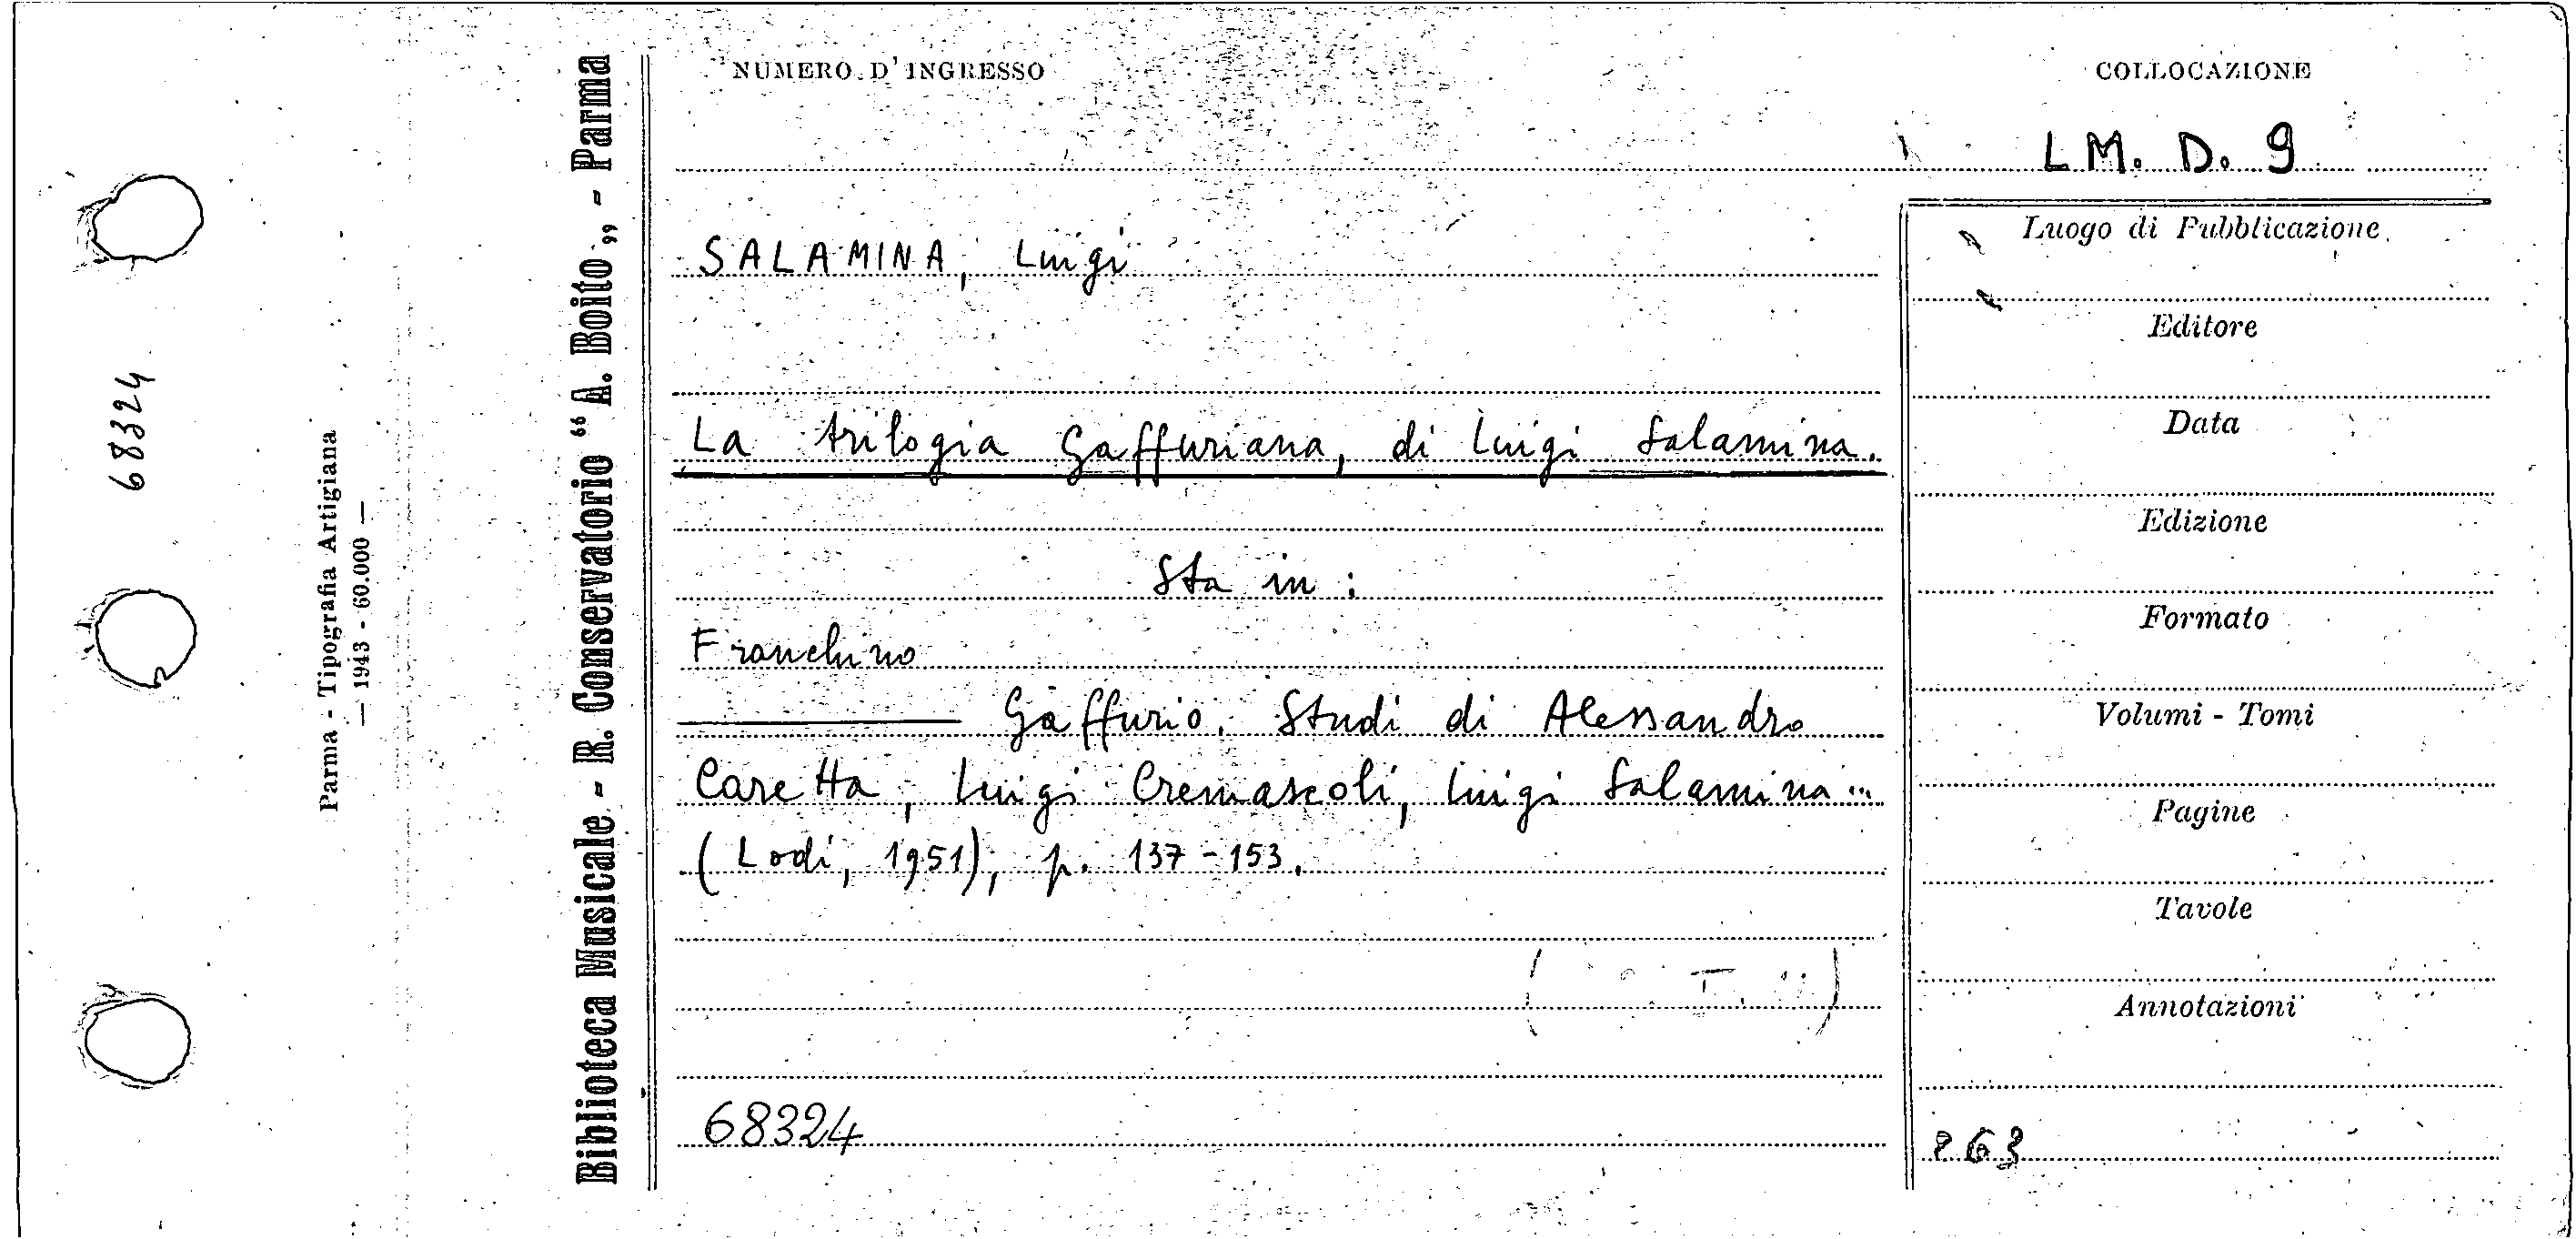 68324
Parma - Tipografia Artigiana
— 1943 - 60.000 —
Biblioteca Musicale - R. Conservatorio "A. Boito„ - Parma
NUMERO D'INGRESSO
COLLOCAZIONE
LM. D. 9
SALAMINA, Luigi
La trilogia Gaffuriana, di Luigi Salamina.
Sta in :
Franchino
Gaffurio. Studi di Alessandro
Caretta, Luigi Cremascoli, Luigi Salamina...
(Lodi, 1951), p. 137-153.
68324
Luogo di Pubblicazione
Editore
Data
Edizione
Formato
Volumi - Tomi
Pagine
Tavole
Annotazioni